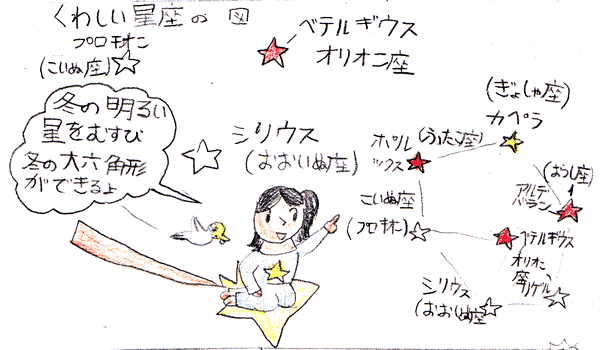 くわしい星座の図
プロキオン
(こいぬ座)
ベテルギウス
オリオン座
シリウス
(おおいぬ座)
冬の明るい
星をむすび
冬の大六角形
ができるよ
(ぎょしゃ座)
カペラ
ポルックス
(ふたご座)
(おうし座)
アルデ
バラン
こいぬ座
(プロキオン)
ベテルギウス
オリオン座
リゲル
シリウス
(おおいぬ座)